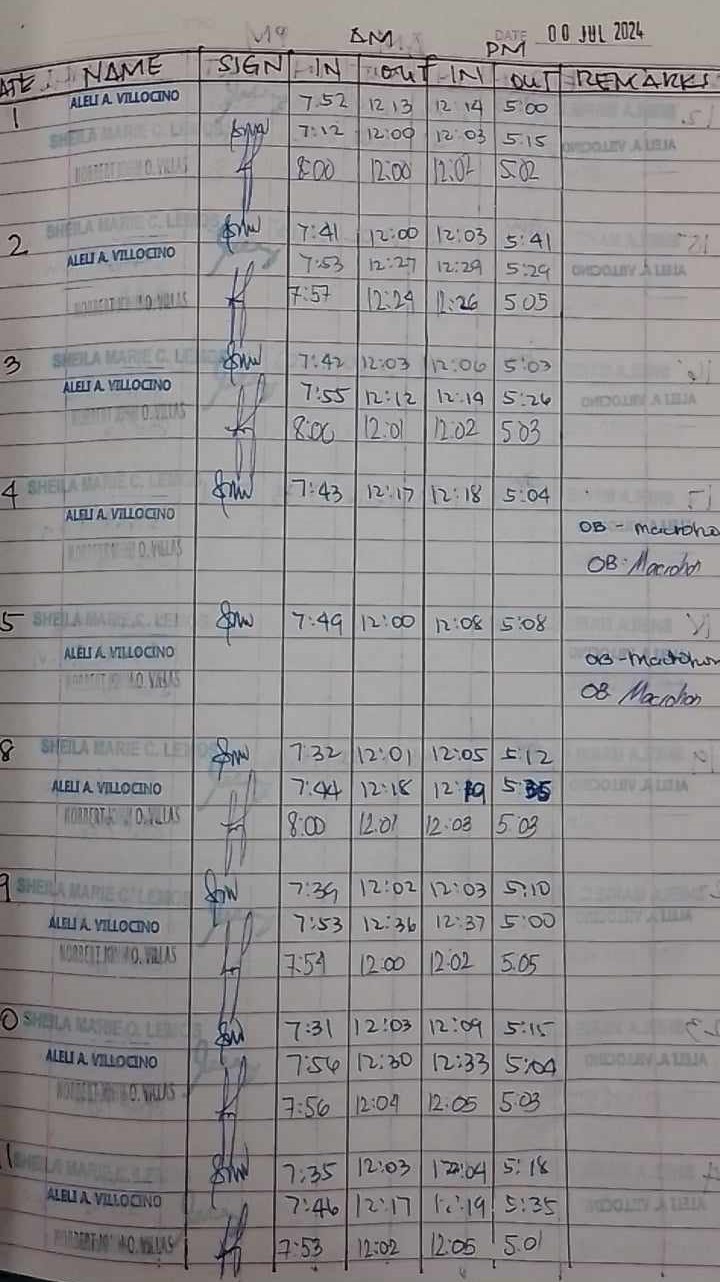 AM PM DATE 00 JUL 2024
DATE NAME SIGN IN OUT IN OUT REMARKS
1 ALELI A. VILLOCINO 7:52 12:13 12:14 5:00
SHEILA MARIE C. LEMOS 7:12 12:00 12:03 5:15
NORBERT JOHN O. VILLAS 8:00 12:00 12:02 5:02
2 SHEILA MARIE C. LEMOS 7:41 12:00 12:03 5:41
ALELI A. VILLOCINO 7:53 12:27 12:29 5:29
NORBERT JOHN O. VILLAS 7:57 12:24 12:26 5:05
3 SHEILA MARIE C. LEMOS 7:42 12:03 12:06 5:03
ALELI A. VILLOCINO 7:55 12:12 12:14 5:26
NORBERT JOHN O. VILLAS 8:00 12:01 12:02 5:03
4 SHEILA MARIE C. LEMOS 7:43 12:17 12:18 5:04
ALELI A. VILLOCINO OB - macroho
NORBERT JOHN O. VILLAS OB - Macrohon
5 SHEILA MARIE C. LEMOS 7:49 12:00 12:08 5:08
ALELI A. VILLOCINO OB - macrohon
NORBERT JOHN O. VILLAS OB Macrohon
8 SHEILA MARIE C. LEMOS 7:32 12:01 12:05 5:12
ALELI A. VILLOCINO 7:44 12:18 12:19 5:35
NORBERT JOHN O. VILLAS 8:00 12:01 12:03 5:03
9 SHEILA MARIE C. LEMOS 7:39 12:02 12:03 5:10
ALELI A. VILLOCINO 7:53 12:36 12:37 5:00
NORBERT JOHN O. VILLAS 7:54 12:00 12:02 5:05
0 SHEILA MARIE C. LEMOS 7:31 12:03 12:09 5:15
ALELI A. VILLOCINO 7:56 12:30 12:33 5:04
NORBERT JOHN O. VILLAS 7:56 12:04 12:05 5:03
1 SHEILA MARIE C. LEMOS 7:35 12:03 12:04 5:18
ALELI A. VILLOCINO 7:46 12:17 12:19 5:35
NORBERT JOHN O. VILLAS 7:53 12:02 12:05 5:01